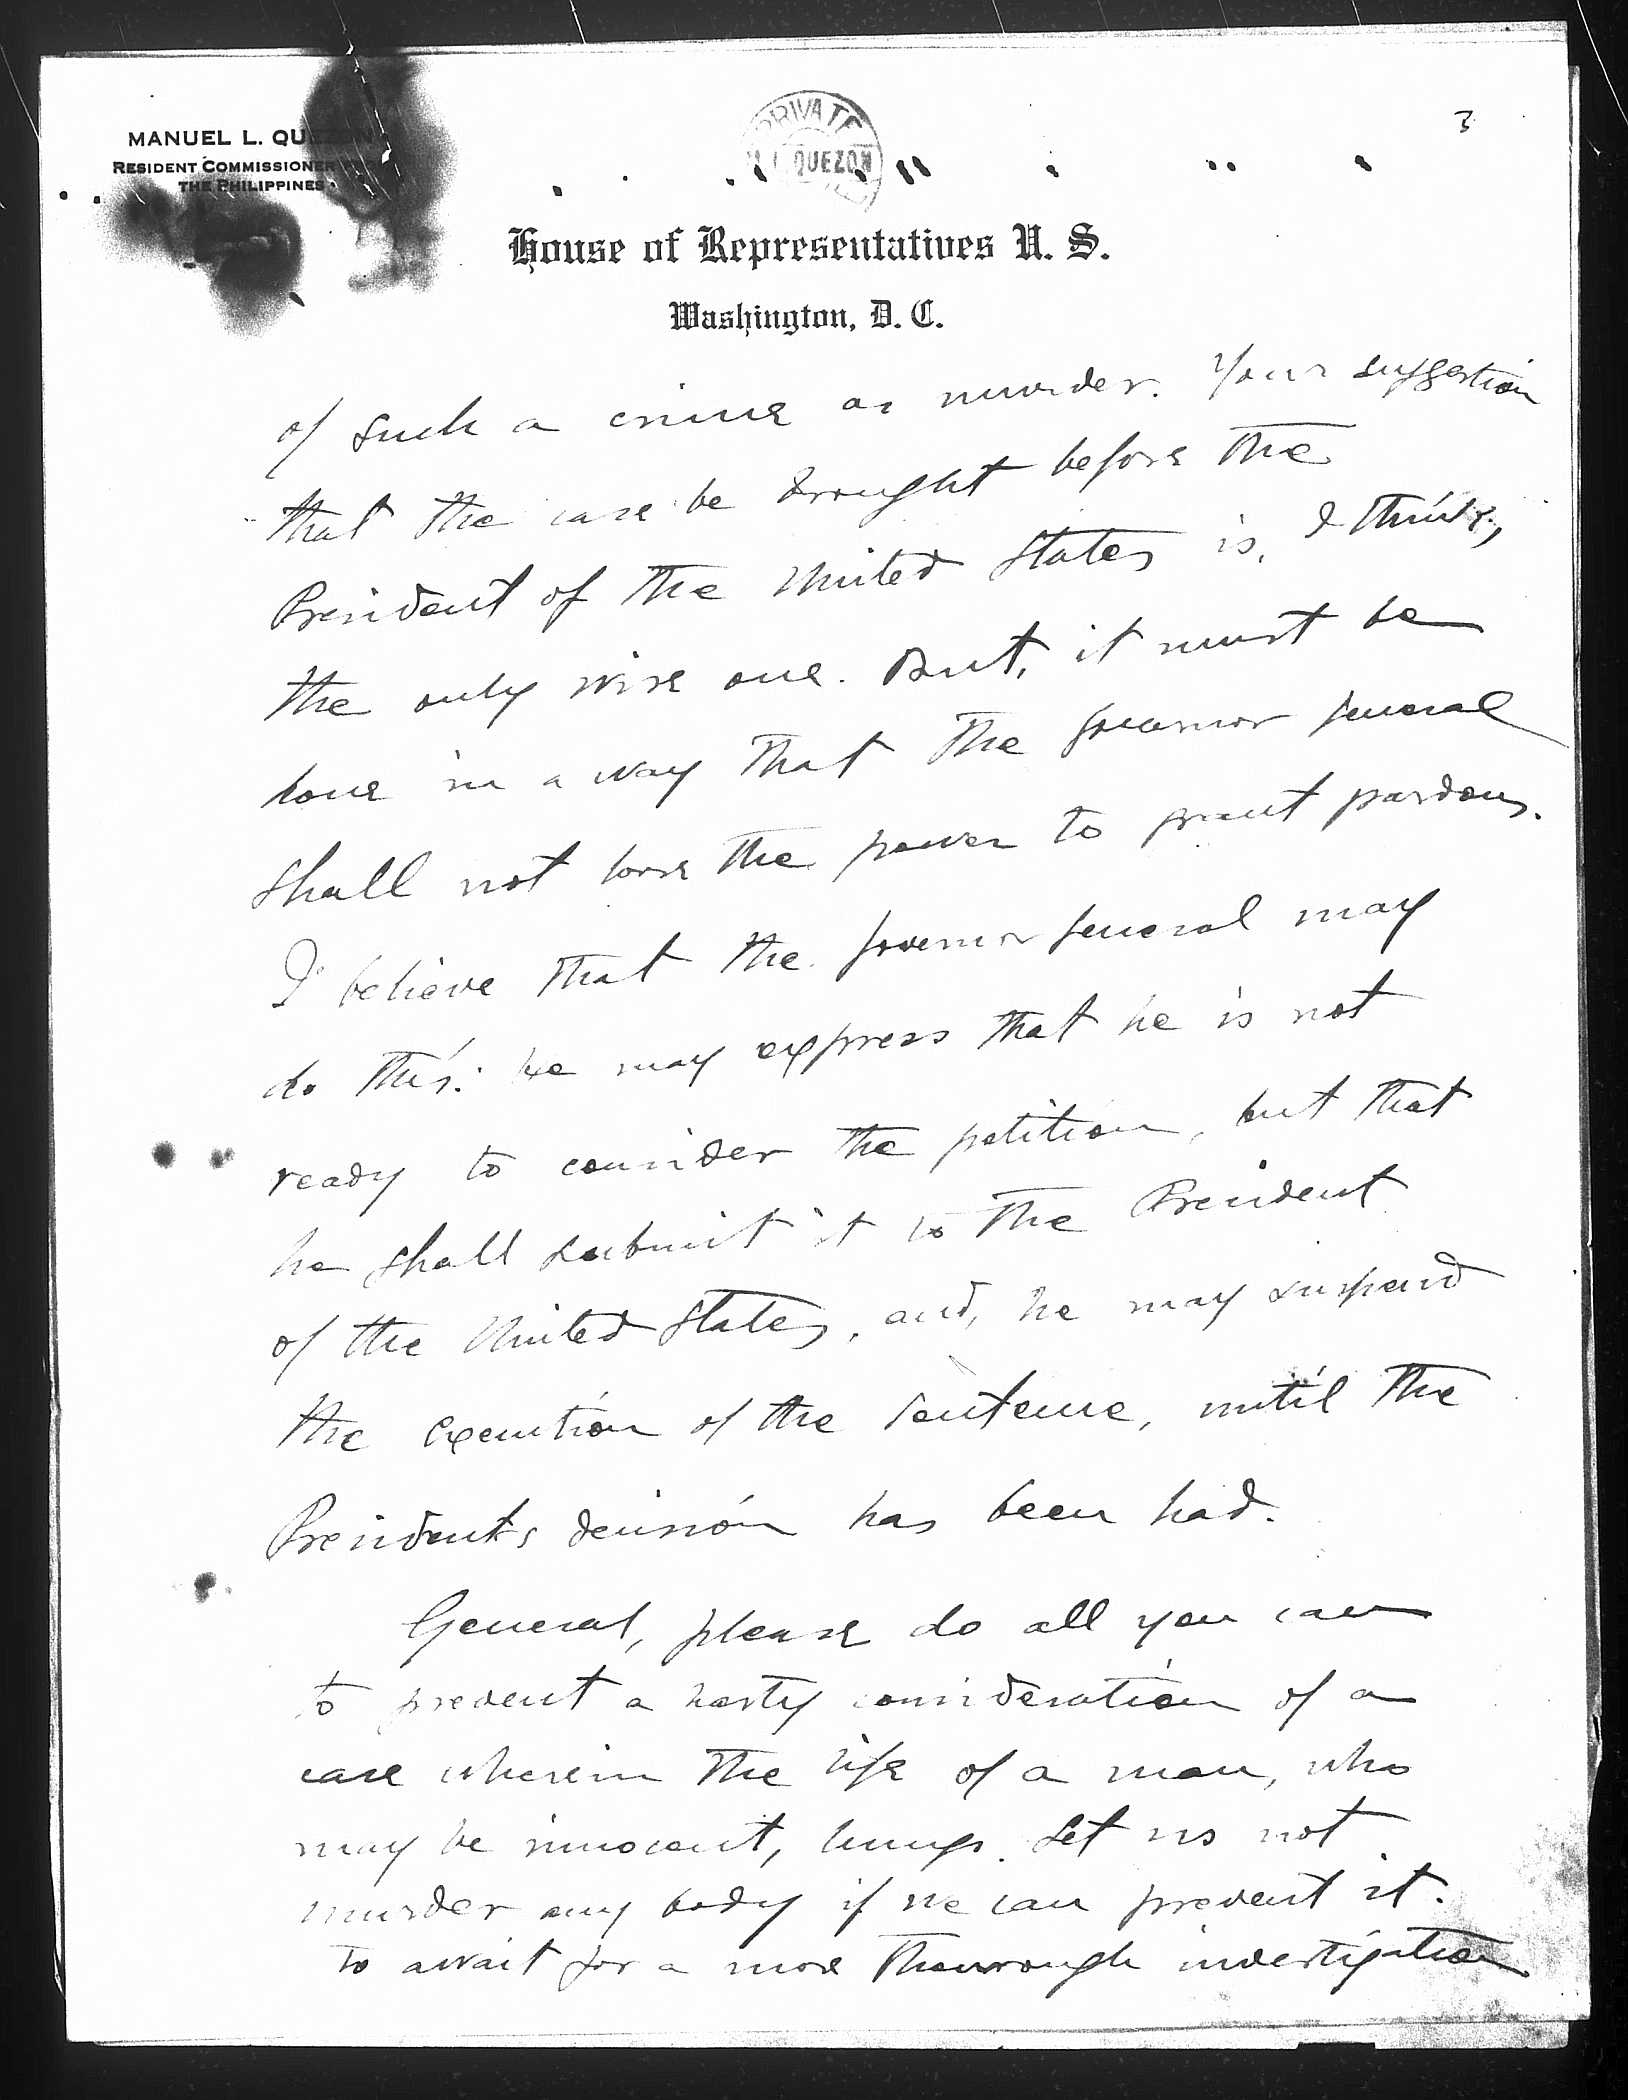 MANUEL L. QUEZON
RESIDENT COMMISSIONER
THE PHILIPPINES
PRIVATE
QUEZON
3
House of Representatives U. S.
Washington, D. C.
of such a crime as murder. Your suggestion
that the case be brought before the
President of the United States is, I think,
the only wise one. But, it must be
done in a way that the governor general
shall not loose the power to grant pardons.
I believe that the governor general may
do this: he may express that he is not
ready to consider the petition, but that
he shall submit it to the President
of the United States, and, he may suspend
the execution of the sentence, until the
Presidents decision has been had.
General, please do all you can
to prevent a hasty consideration of a
case wherein the life of a man, who
may be innocent, hungs. Let us not
murder any body if we can prevent it.
To await for a more thourough investigation